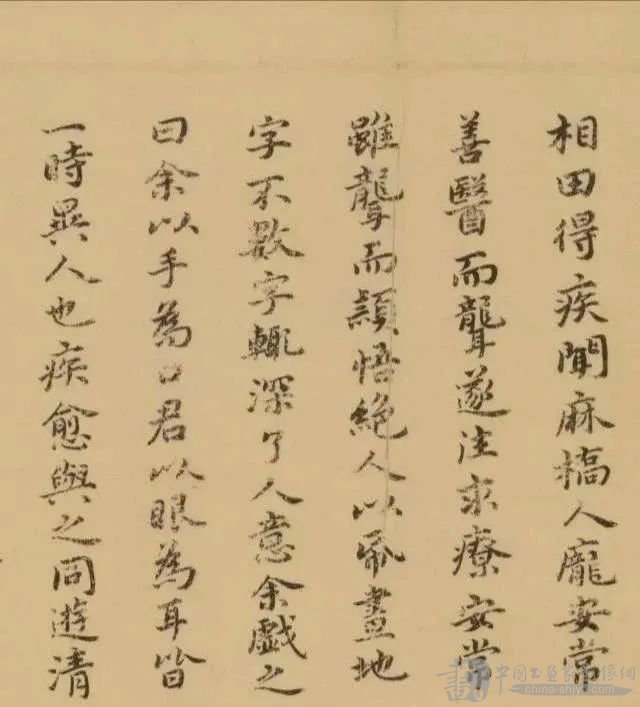 相田得疾聞麻橋人龐安常
善醫而聾遂往求療安常
雖聾而穎悟絕人以爪畫地
字不數字輒深了人意余戲之
曰余以手為口君以眼為耳皆
一時異人也疾愈與之同遊清
中国书画家影像網
china-shjyx.com